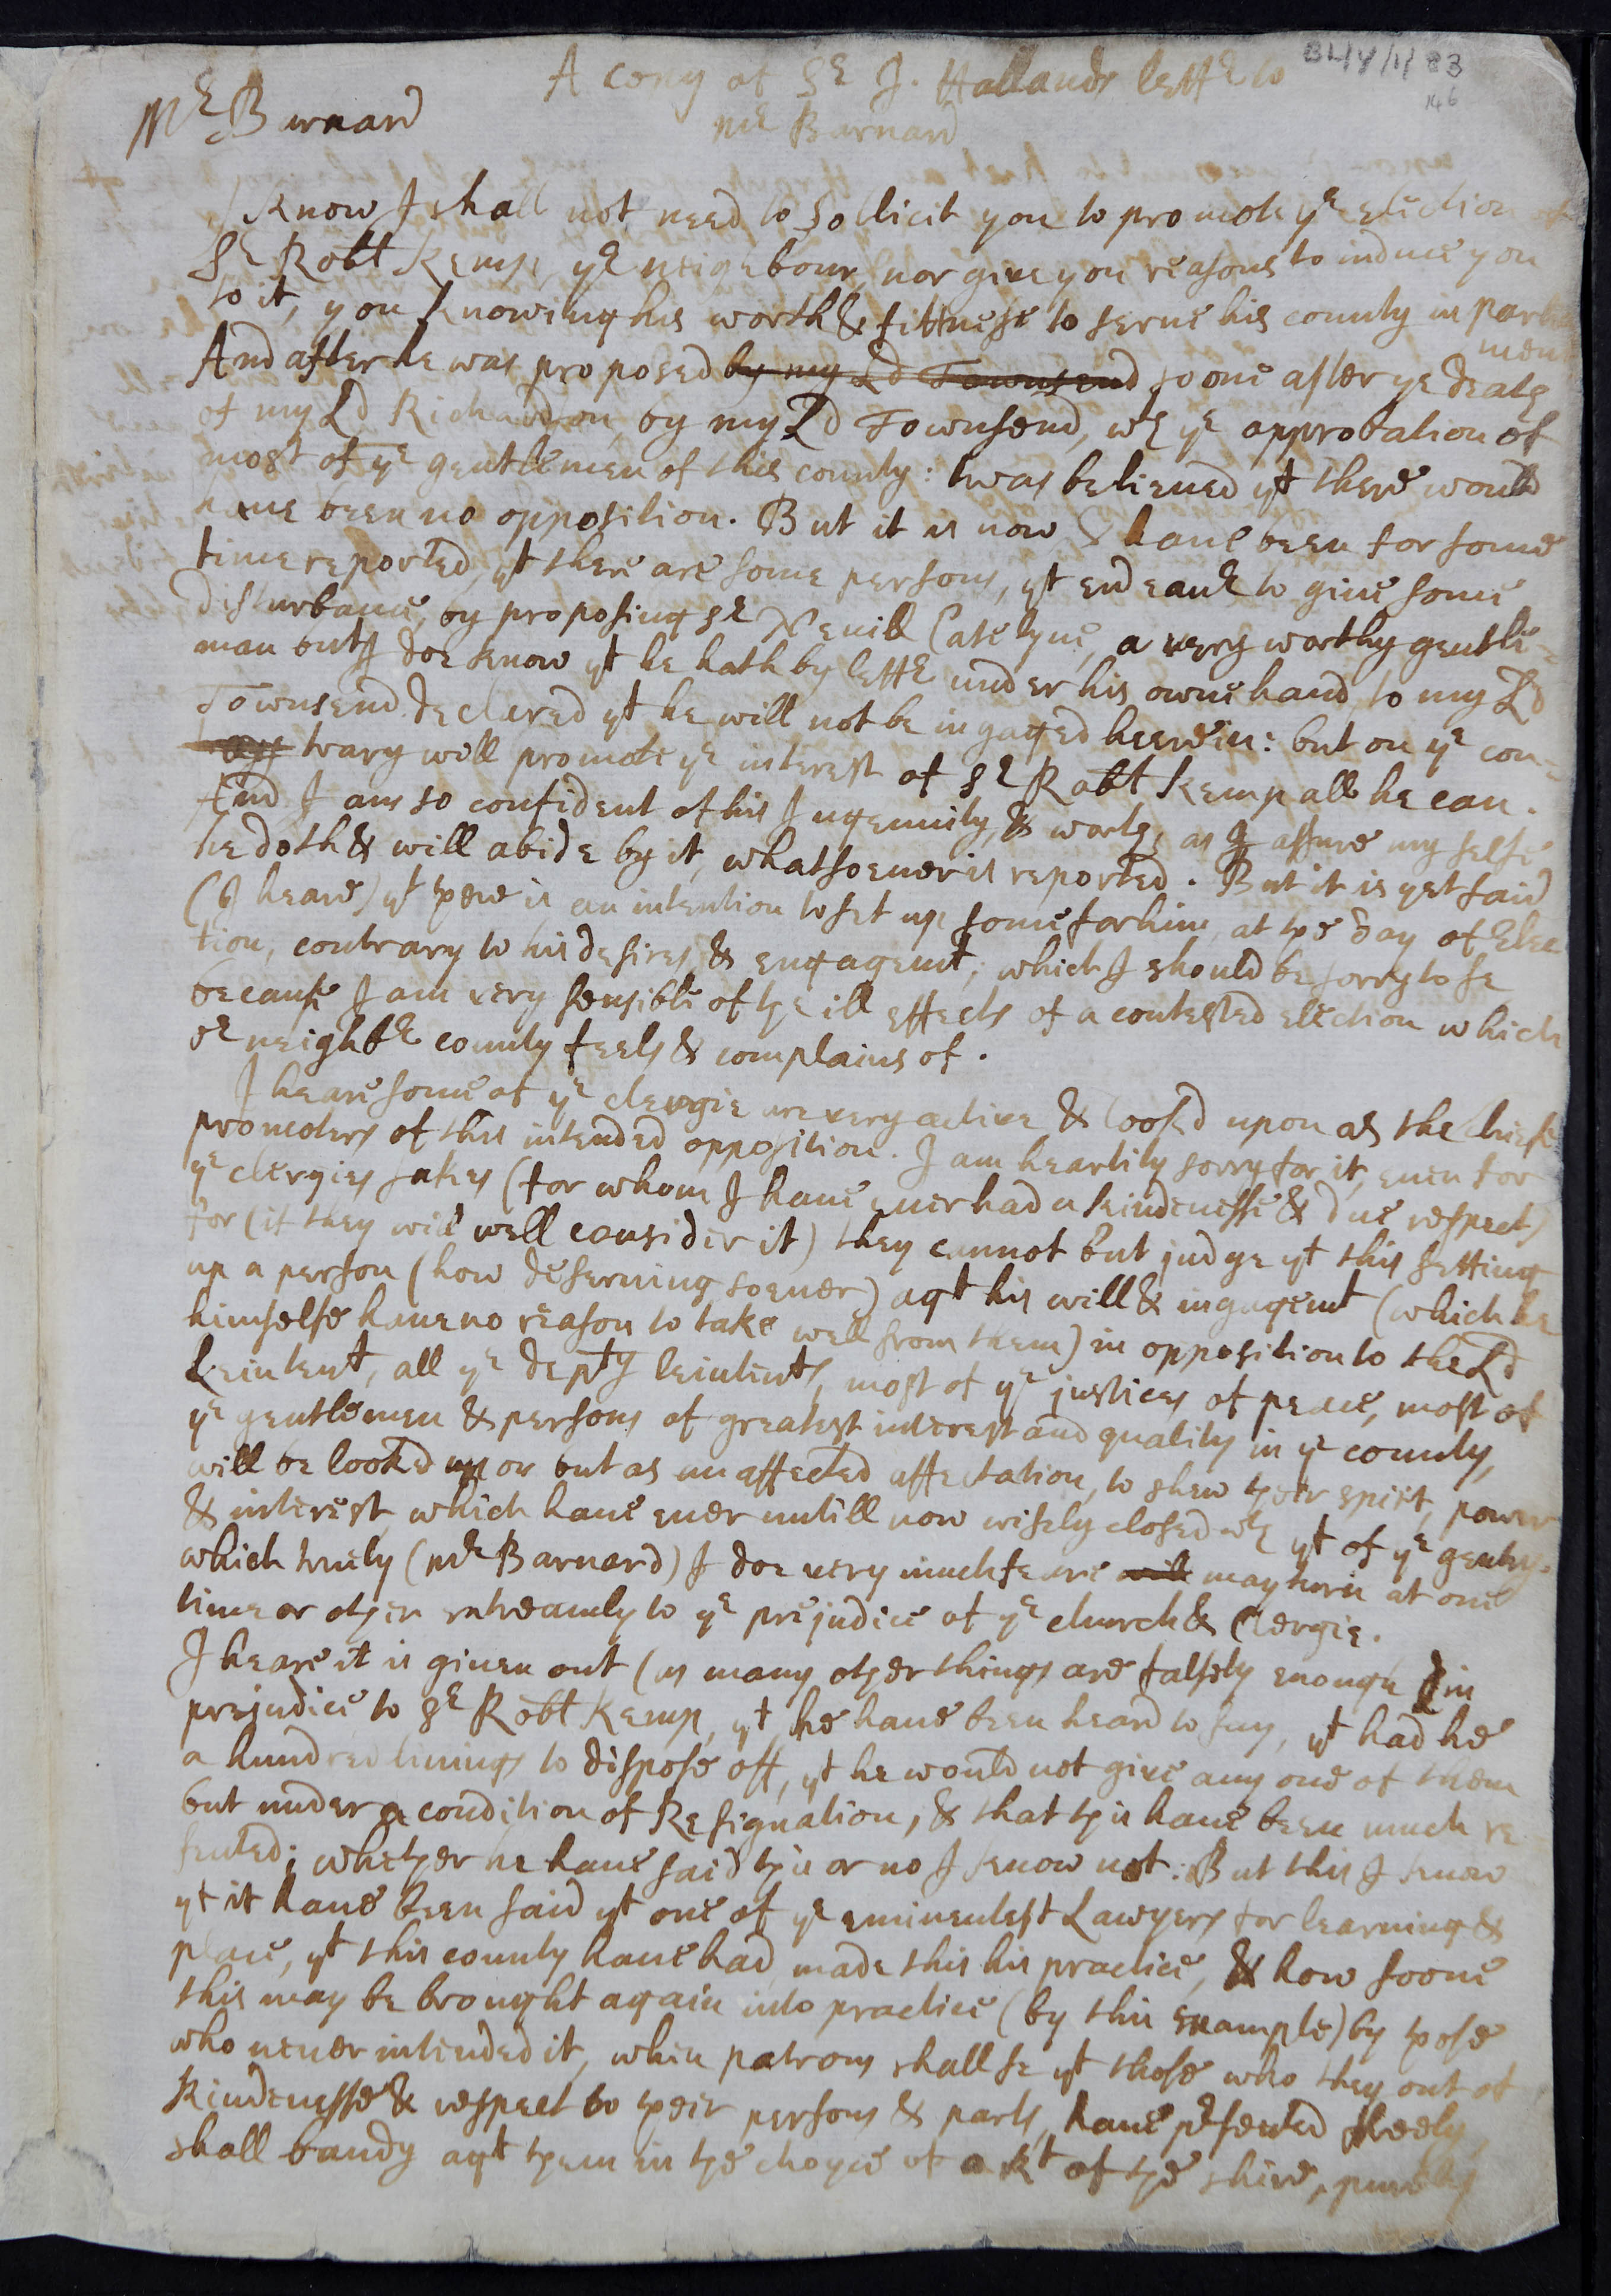 A copy of Sr J. Hollands lettr to
BL/Y/1/83
146
Mr Barnard
Mr Barnard
I know I shall not need to sollicit you to promote ye election of
Sr Robt Kemp, yr neighbour, nor give you reasons to induce you
to it, you knowing his worth & fittnesse to serve his county in parlia
ment
And after he was proposed by my Ld Townsend soone after ye death
of my Ld Richardson, by my Ld Townsend, wth ye approbation of
most of ye gentlemen of this county: twas believed yt there would
have been no opposition. But it is now & have been for some
time reported, yt there are some persons, yt endeavr to give some
disturbance, by proposing Sr Nevill Catelyne, a very worthy gentle=
man but I doe know yt he hath by lettr under his owne hand, to my Ld
Townsend declared yt he will not be ingaged heerein: but on ye con=
trary will promote ye interest of Sr Robt Kemp all he can.
And I am so confident of his Ingenuity, & worth, as I assure my selfe
he doth & will abide by it, whatsoever is reported. But it is yet said
(I heare) yt there is an intention to set up some for him, at the day of Elec
tion, contrary to his desires, & engagemt; which I should be sorry to se
because I am very sensible of the ill effects of a contested election which
or neighbr county feels & complains of.
I heare some of ye clergie are very active & look'd upon as the cheife
promoters of this intended opposition. I am heartily sorry for it, even for
ye clergies sakes (for whom I have ever had a kindenesse & due respect)
for (if they will well consider it) they cannot but judge yt this setting
up a person (how deserving soever) agt his will & ingagemt (which he
himselfe have no reason to take well from them) in opposition to the Ld
Leiutent, all ye depty leiutents, most of ye justices of peace, most of
ye gentlemen & persons of greatest interest and quality in ye county,
will be looked upon but as an affected affectation, to shew their spirt, power
& interest, which have ever untill now wisely closed wth yt of ye gentry.
which truely (Mr Barnard) I doe very much feare will may turne at one
time or other extreamly to ye prejudice of ye church & Clergie.
I heare it is given out (as many other things are falsely enough) in
prejudice to Sr Robt Kemp, yt he have been heard to say, yt had he
a hundred livings to dispose off, yt he would not give any one of them
but under a condition of Resignation, & that this have been much re
sented; whether he have said this or no I know not: But this I know
yt it have been said yt one of ye eminentest Lawyers for learning &
place, yt this county have had, made this his practice, & how soone
this may be brought again into practice (by this example) by those
who never intended it, when patrons shall se yt those who they out of
Kindenesse & respect to their persons & parts, have prsented freely,
shall bandy agt them in the choyce of a Kt of the shire, purely